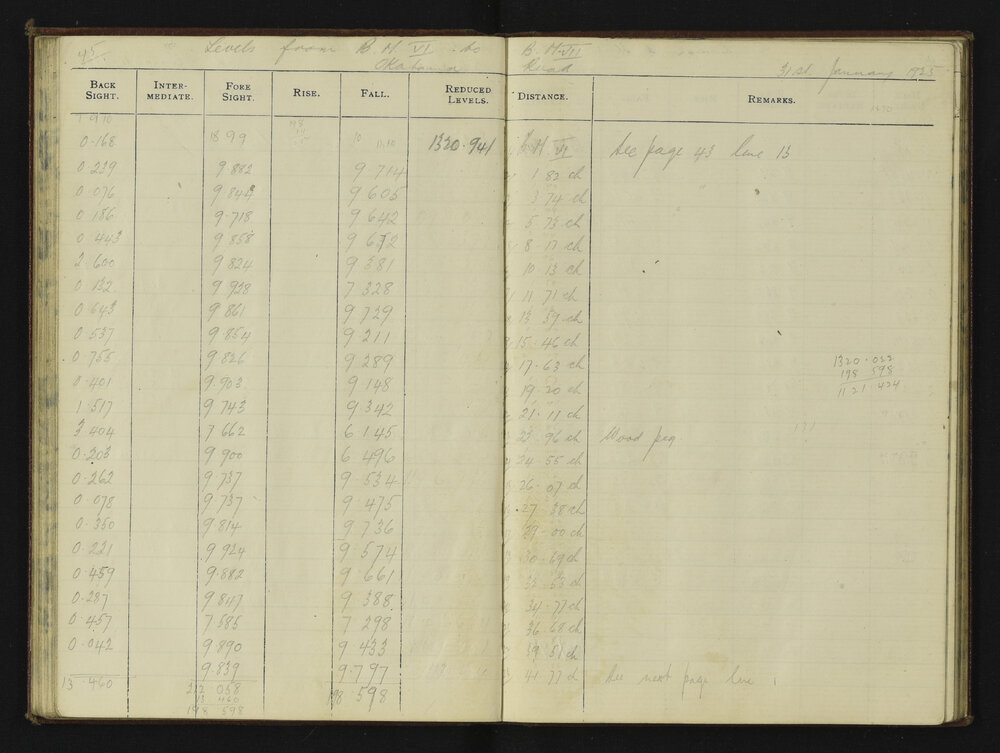 45. Levels from B. M. VI to B. M. VII
Okataina Road 31st January 1925
BACK SIGHT. INTER-MEDIATE. FORE SIGHT. RISE. FALL. REDUCED LEVELS. DISTANCE. REMARKS.
1 970
0.168 18 99 10 1320.941 B. M. VI See page 43 line 13
0 239 9.882 9 714 1 82 ch
0 076 9 844 9 605 3 74 ch
0 186 9.718 9 642 5 73 ch
0 443 9 858 9 672 8 17 ch
2 600 9 824 9 381 10 13 ch
0 132 9 928 7 328 11 71 ch
0 643 9 861 9 729 13 59 ch
0 537 9 854 9 211 15.46 ch
0 755 9 826 9 289 17.63 ch
1320.022
198 598
1121.424
0.401 9 903 9 148 19 20 ch
1 517 9 743 9 342 21.11 ch
3 404 7 662 6 145 23 96 ch Wood peg
0.203 9 900 6 496 24 55 ch
0.262 9.737 9 534 26.07 ch
0 078 9.737 9.475 27 38 ch
0.350 9 814 9.736 29.00 ch
0.221 9 924 9.574 30.69 ch
0.459 9.882 9.661 32 53 ch
0.287 9 847 9 388 34.77 ch
0.457 7 585 7 298 36 68 ch
0.042 9 890 9 433 39 51 ch
9.839 9.797 41 77 ch See next page line 1
13.460 212 058 198.598
13 460
198 598